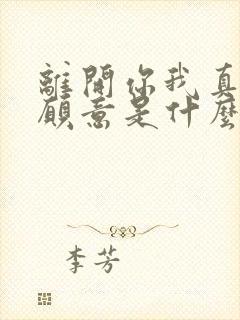 離開你我真
願意是什麼
李芳